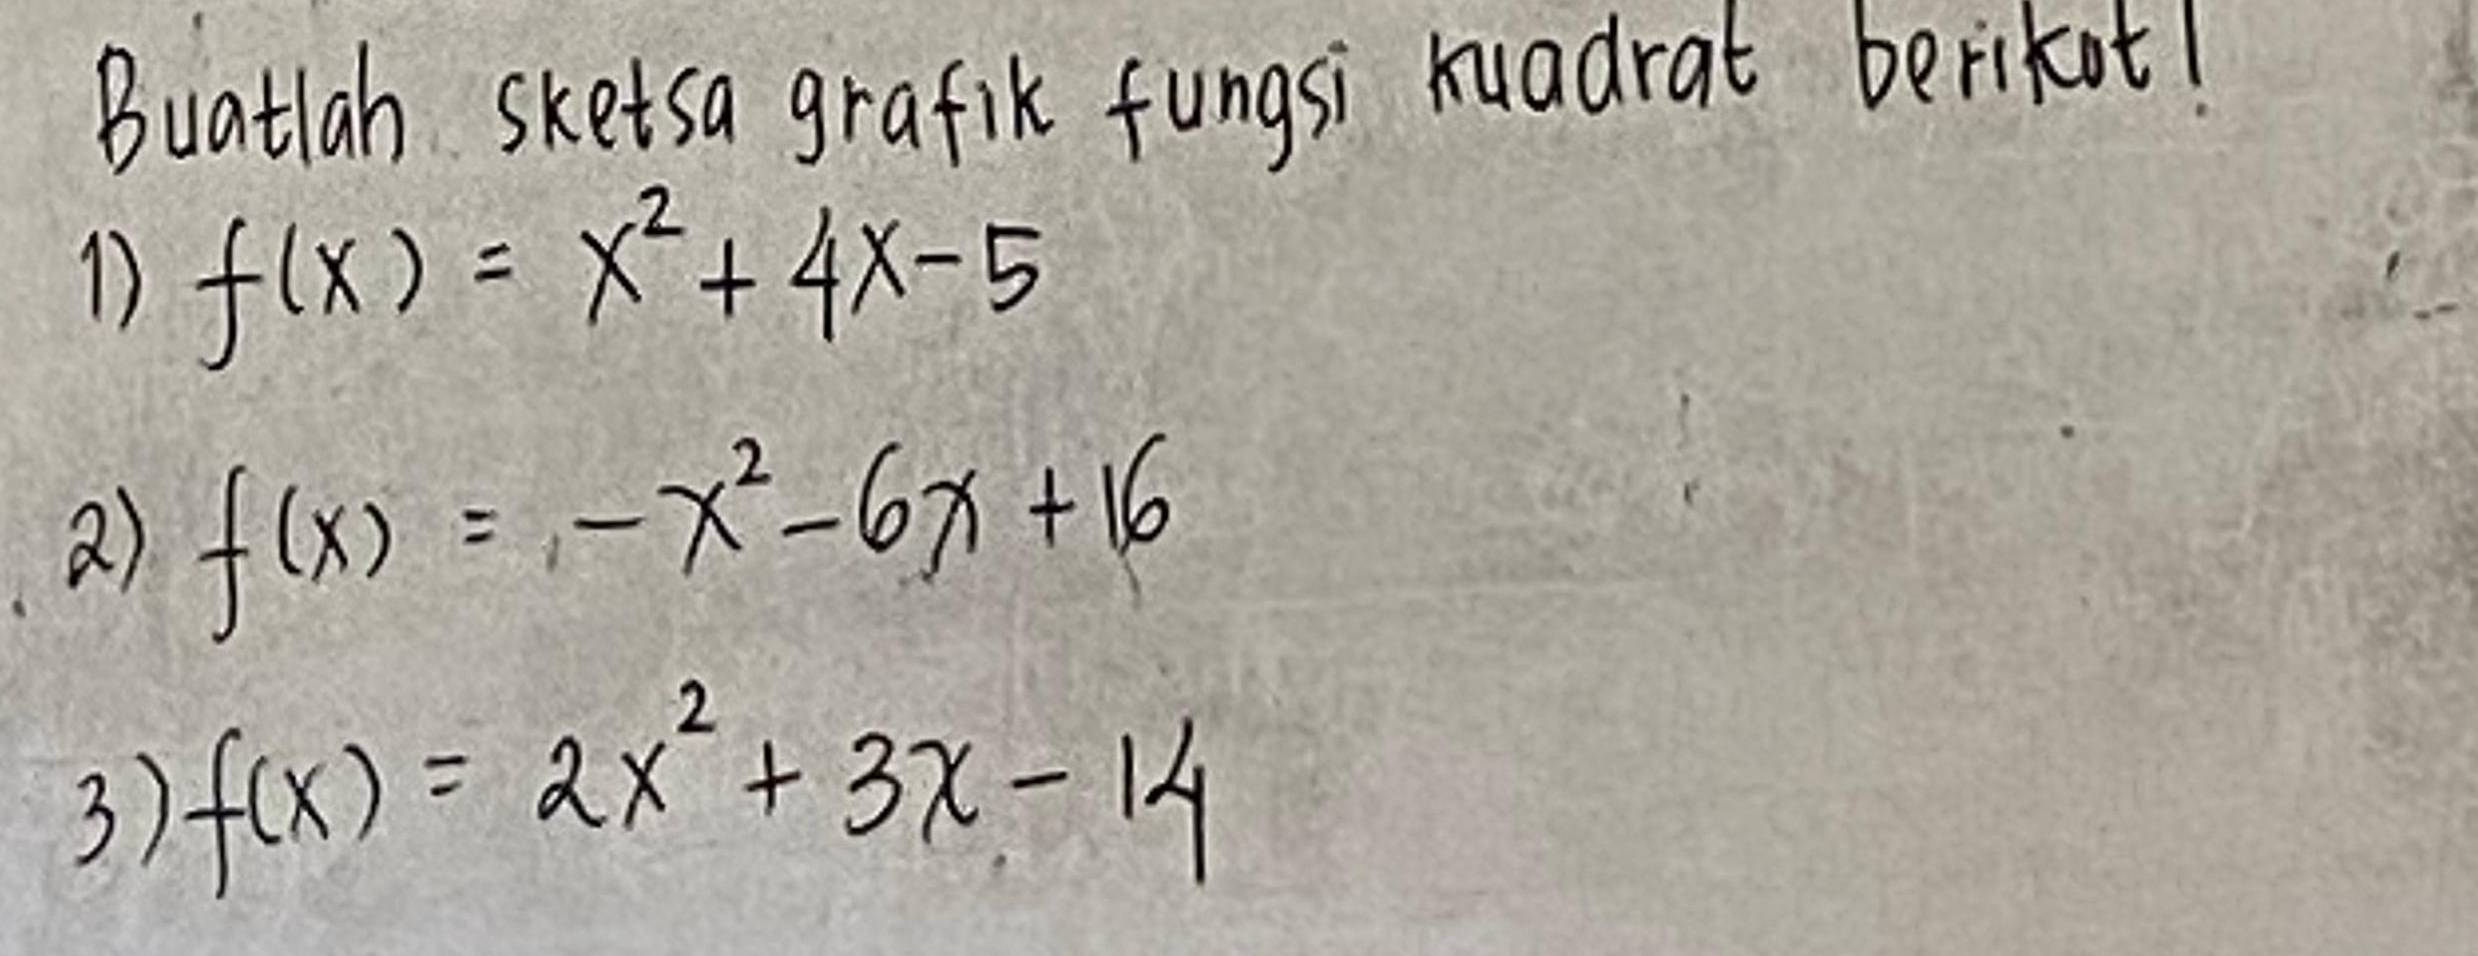 Buatlah sketsa grafik fungsi kuadrat berikut!
1) f(x) = x² + 4x - 5
2) f(x) = -x² - 6x + 16
3) f(x) = 2x² + 3x - 14